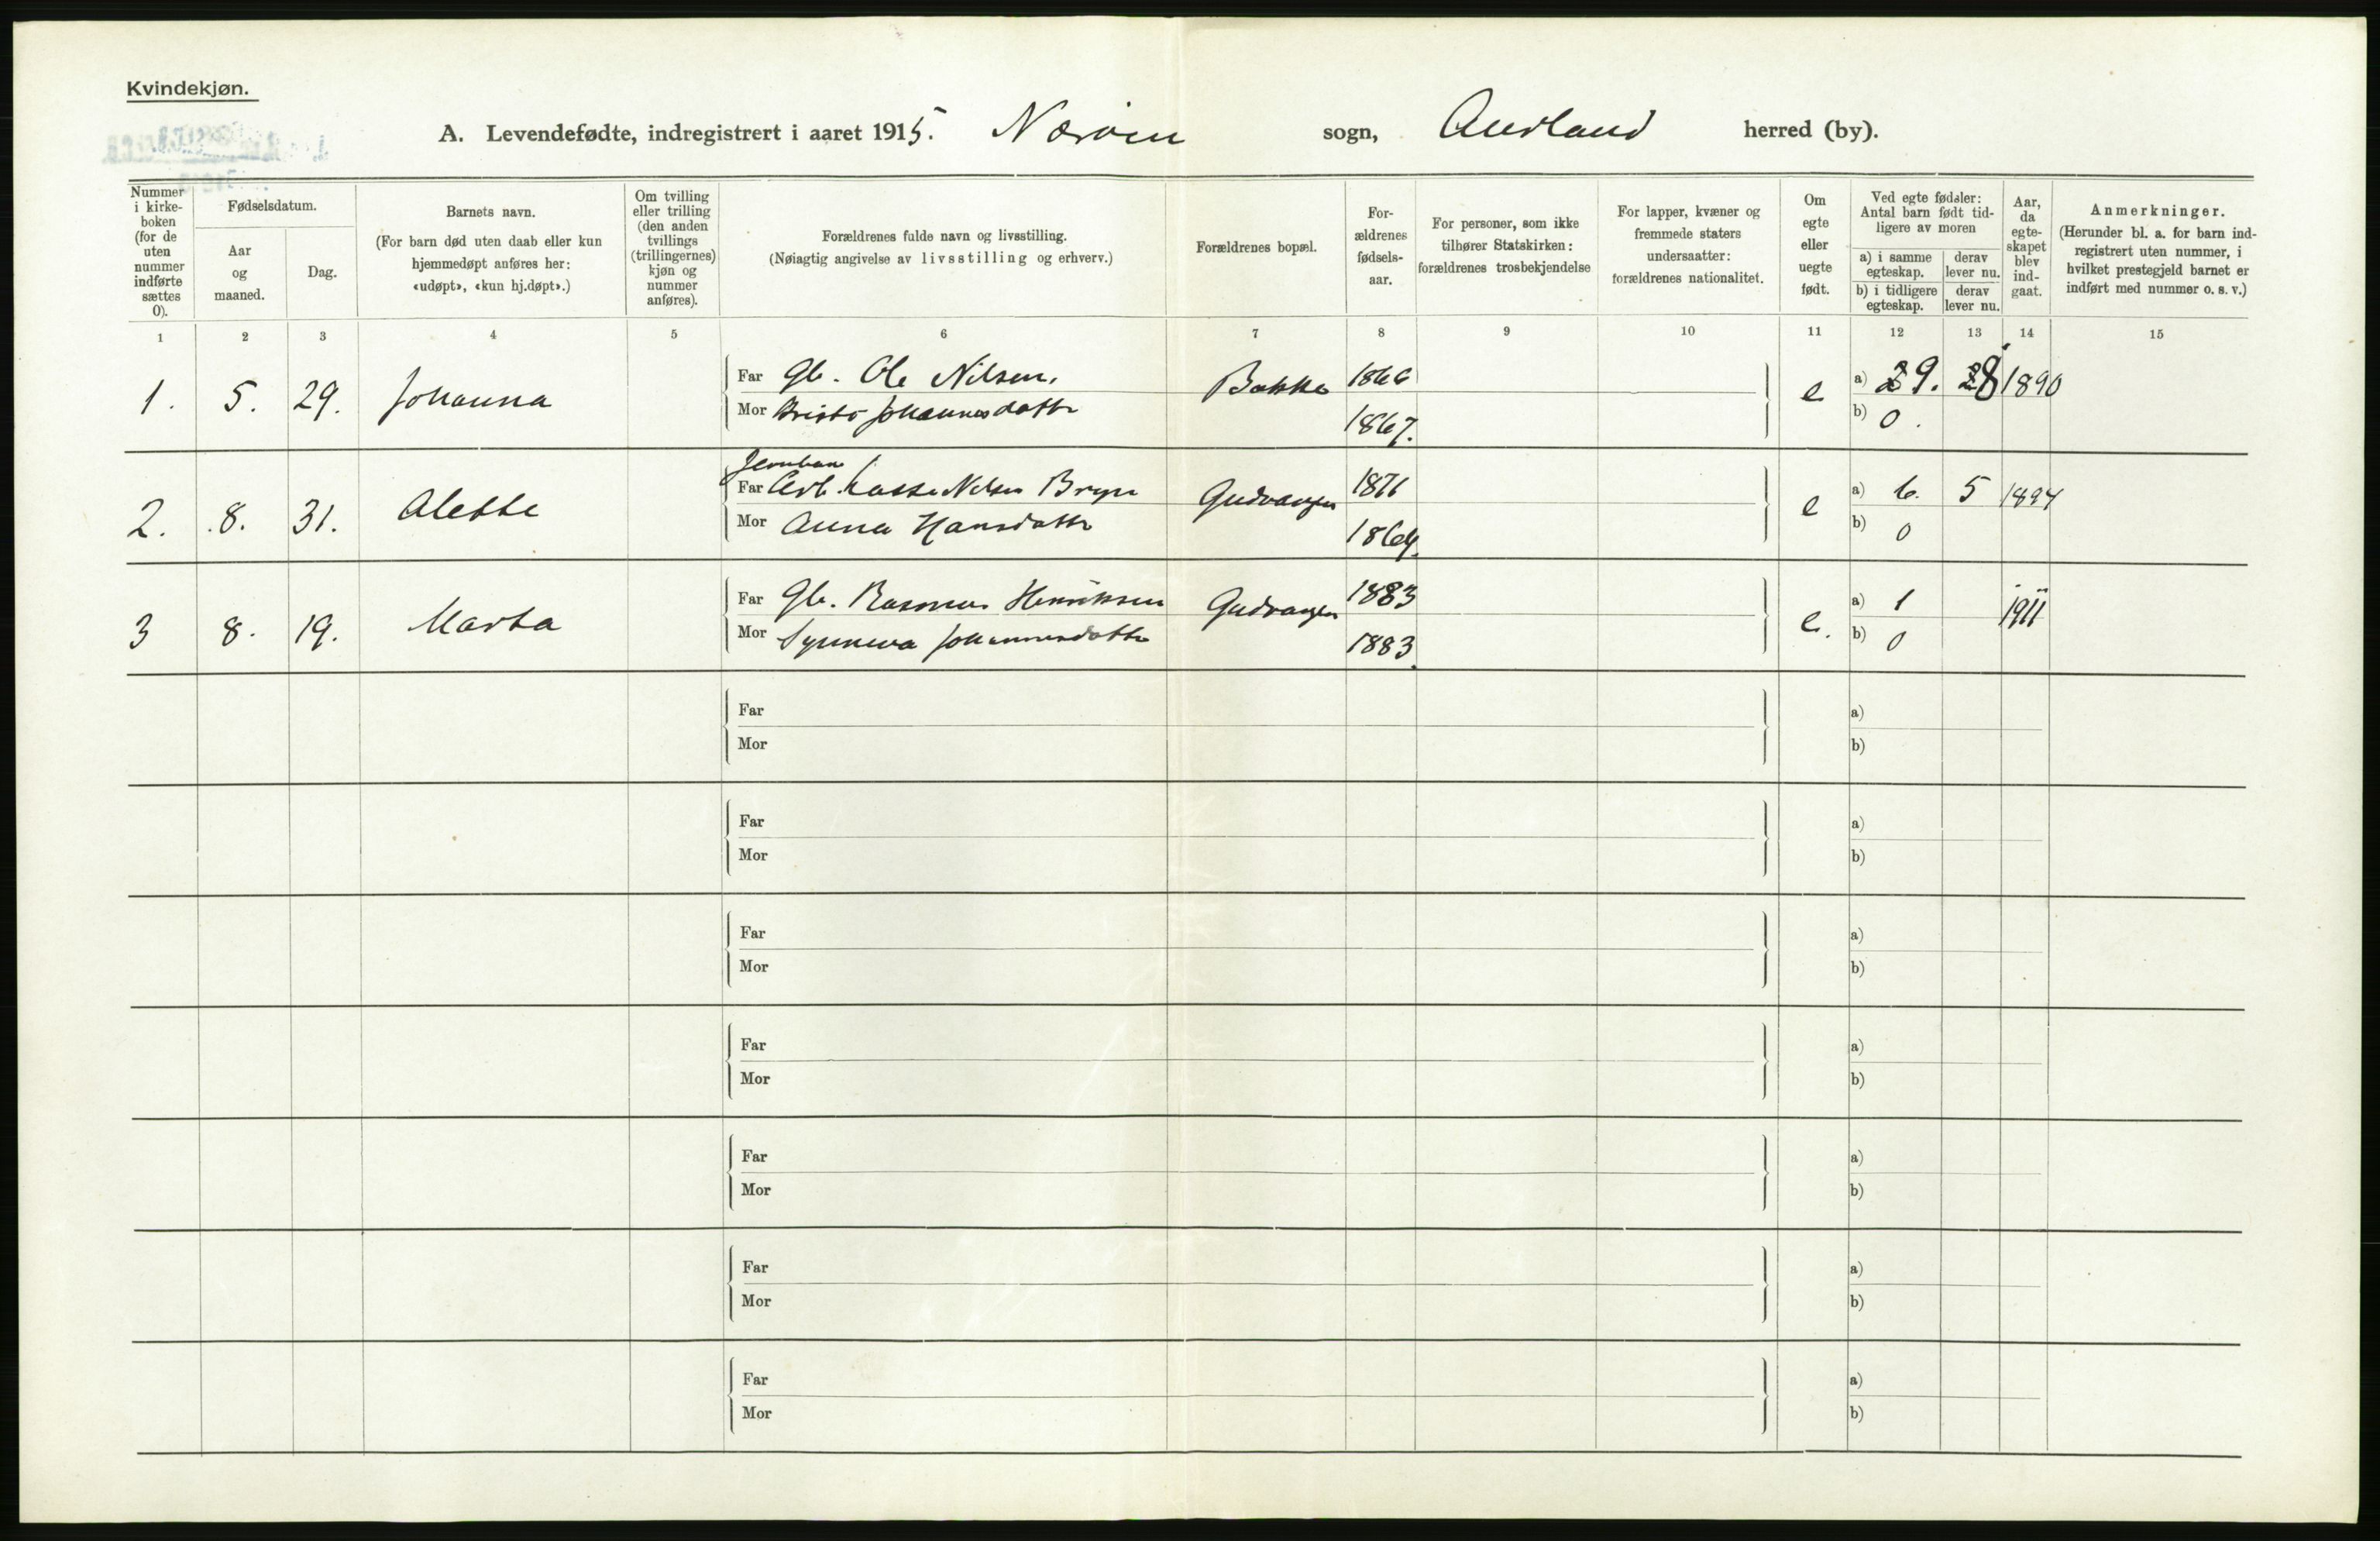 Kvindekjøn.
A. Levendefødte, indregistrert i aaret 1915. Nærøens sogn, Aurland herred (by).
Nummer i kirke-boken (for de uten nummer indførte sættes 0).
Fødselsdatum.
Aar og maaned.
Dag.
Barnets navn.
(For barn død uten daab eller kun hjemmedøpt anføres her: «udøpt», «kun hj.døpt».)
Om tvilling eller trilling (den anden tvillings (trillingernes) kjøn og nummer anføres).
Forældrenes fulde navn og livsstilling.
(Nøiagtig angivelse av livsstilling og erhverv.)
Forældrenes bopæl.
For-ældrenes fødsels-aar.
For personer, som ikke tilhører Statskirken: forældrenes trosbekjendelse
For lapper, kvæner og fremmede staters undersaatter: forældrenes nationalitet.
Om egte eller uegte født.
Ved egte fødsler: Antal barn født tid-ligere av moren
a) i samme egteskap.
derav lever nu.
b) i tidligere egteskap.
derav lever nu.
Aar, da egte-skapet blev ind-gaat.
Anmerkninger.
(Herunder bl. a. for barn ind-registrert uten nummer, i hvilket prestegjeld barnet er indført med nummer o. s. v.)
1 2 3 4 5 6 7 8 9 10 11 12 13 14 15
1. 5. 29. Johanna Far Gb. Ole Nilsen. Bakke 1866 e a) 9. 8 1890
Mor Johannesdattr 1867. b) 0.
2. 8. 31. Alette Far Lasse Nelsen Gudvangen 1871 e a) 6. 5 1894
Mor Anna Hansdattr 1869. b) 0
3 8. 19. Marta Far Gb. Rasmus Henriksen Gudvangen 1883 e. a) 1 1911
Mor Synneva Johannesdattr 1883. b) 0
Far a)
Mor b)
Far a)
Mor b)
Far a)
Mor b)
Far a)
Mor b)
Far a)
Mor b)
Far a)
Mor b)
Far a)
Mor b)